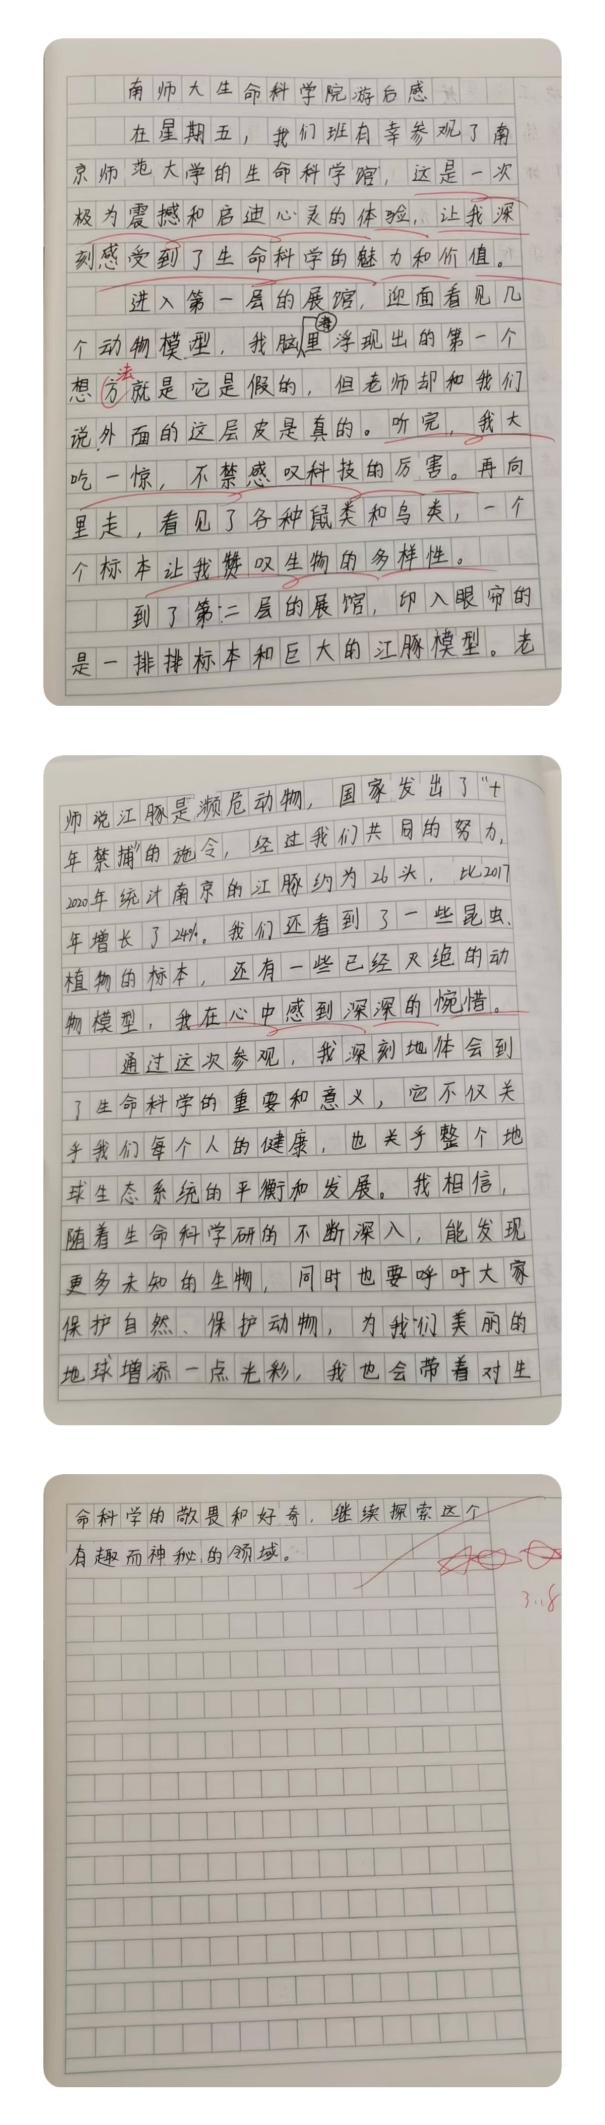 南师大生命科学院游后感
在星期五，我们班有幸参观了南
京师范大学的生命科学馆，这是一次
极为震撼和启迪心灵的体验，让我深
刻感受到了生命科学的魅力和价值。
进入第一层的展馆，迎面看见几
个动物模型，我脑海里浮现出的第一个
想方法就是它是假的，但老师却和我们
说外面的这层皮是真的。听完，我大
吃一惊，不禁感叹科技的厉害。再向
里走，看见了各种鼠类和鸟类，一个
个标本让我赞叹生物的多样性。
到了第二层的展馆，印入眼帘的
是一排排标本和巨大的江豚模型。老
师说江豚是濒危动物，国家发出了“十
年禁捕”的施令，经过我们共同的努力，
2020年统计南京的江豚约为26头，比2017
年增长了24%。我们还看到了一些昆虫、
植物的标本，还有一些已经灭绝的动
物模型，我在心中感到深深的惋惜。
通过这次参观，我深刻地体会到
了生命科学的重要和意义，它不仅关
乎我们每个人的健康，也关乎整个地
球生态系统的平衡和发展。我相信，
随着生命科学研的不断深入，能发现
更多未知的生物，同时也要呼吁大家
保护自然、保护动物，为我们美丽的
地球增添一点光彩，我也会带着对生
命科学的敬畏和好奇，继续探索这个
有趣而神秘的领域。
3.18